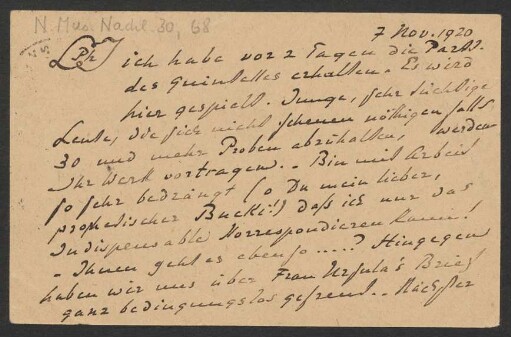 N. Mus. Nachl. 30, 68
7 Nov. 1920
LPhJ ich habe vor 2 Tagen die Part.
des Quintettes erhalten. Es wird
hier gespielt. Junge, sehr tüchtige
Leute, die sich nicht scheuen nöthigenfalls
30 und mehr Proben abzuhalten, werden
Ihr Werk vortragen. – Bin mit Arbeit
so sehr bedrängt (o Du mein lieber,
prophetischer Bucki!) daß ich nur das
Indispensable Korrespondieren kann!
– Ihnen geht es ebenso ....? Hingegen
haben wir uns über Frau Ursula's Brief
ganz bedingungslos gefreut. – Nächster